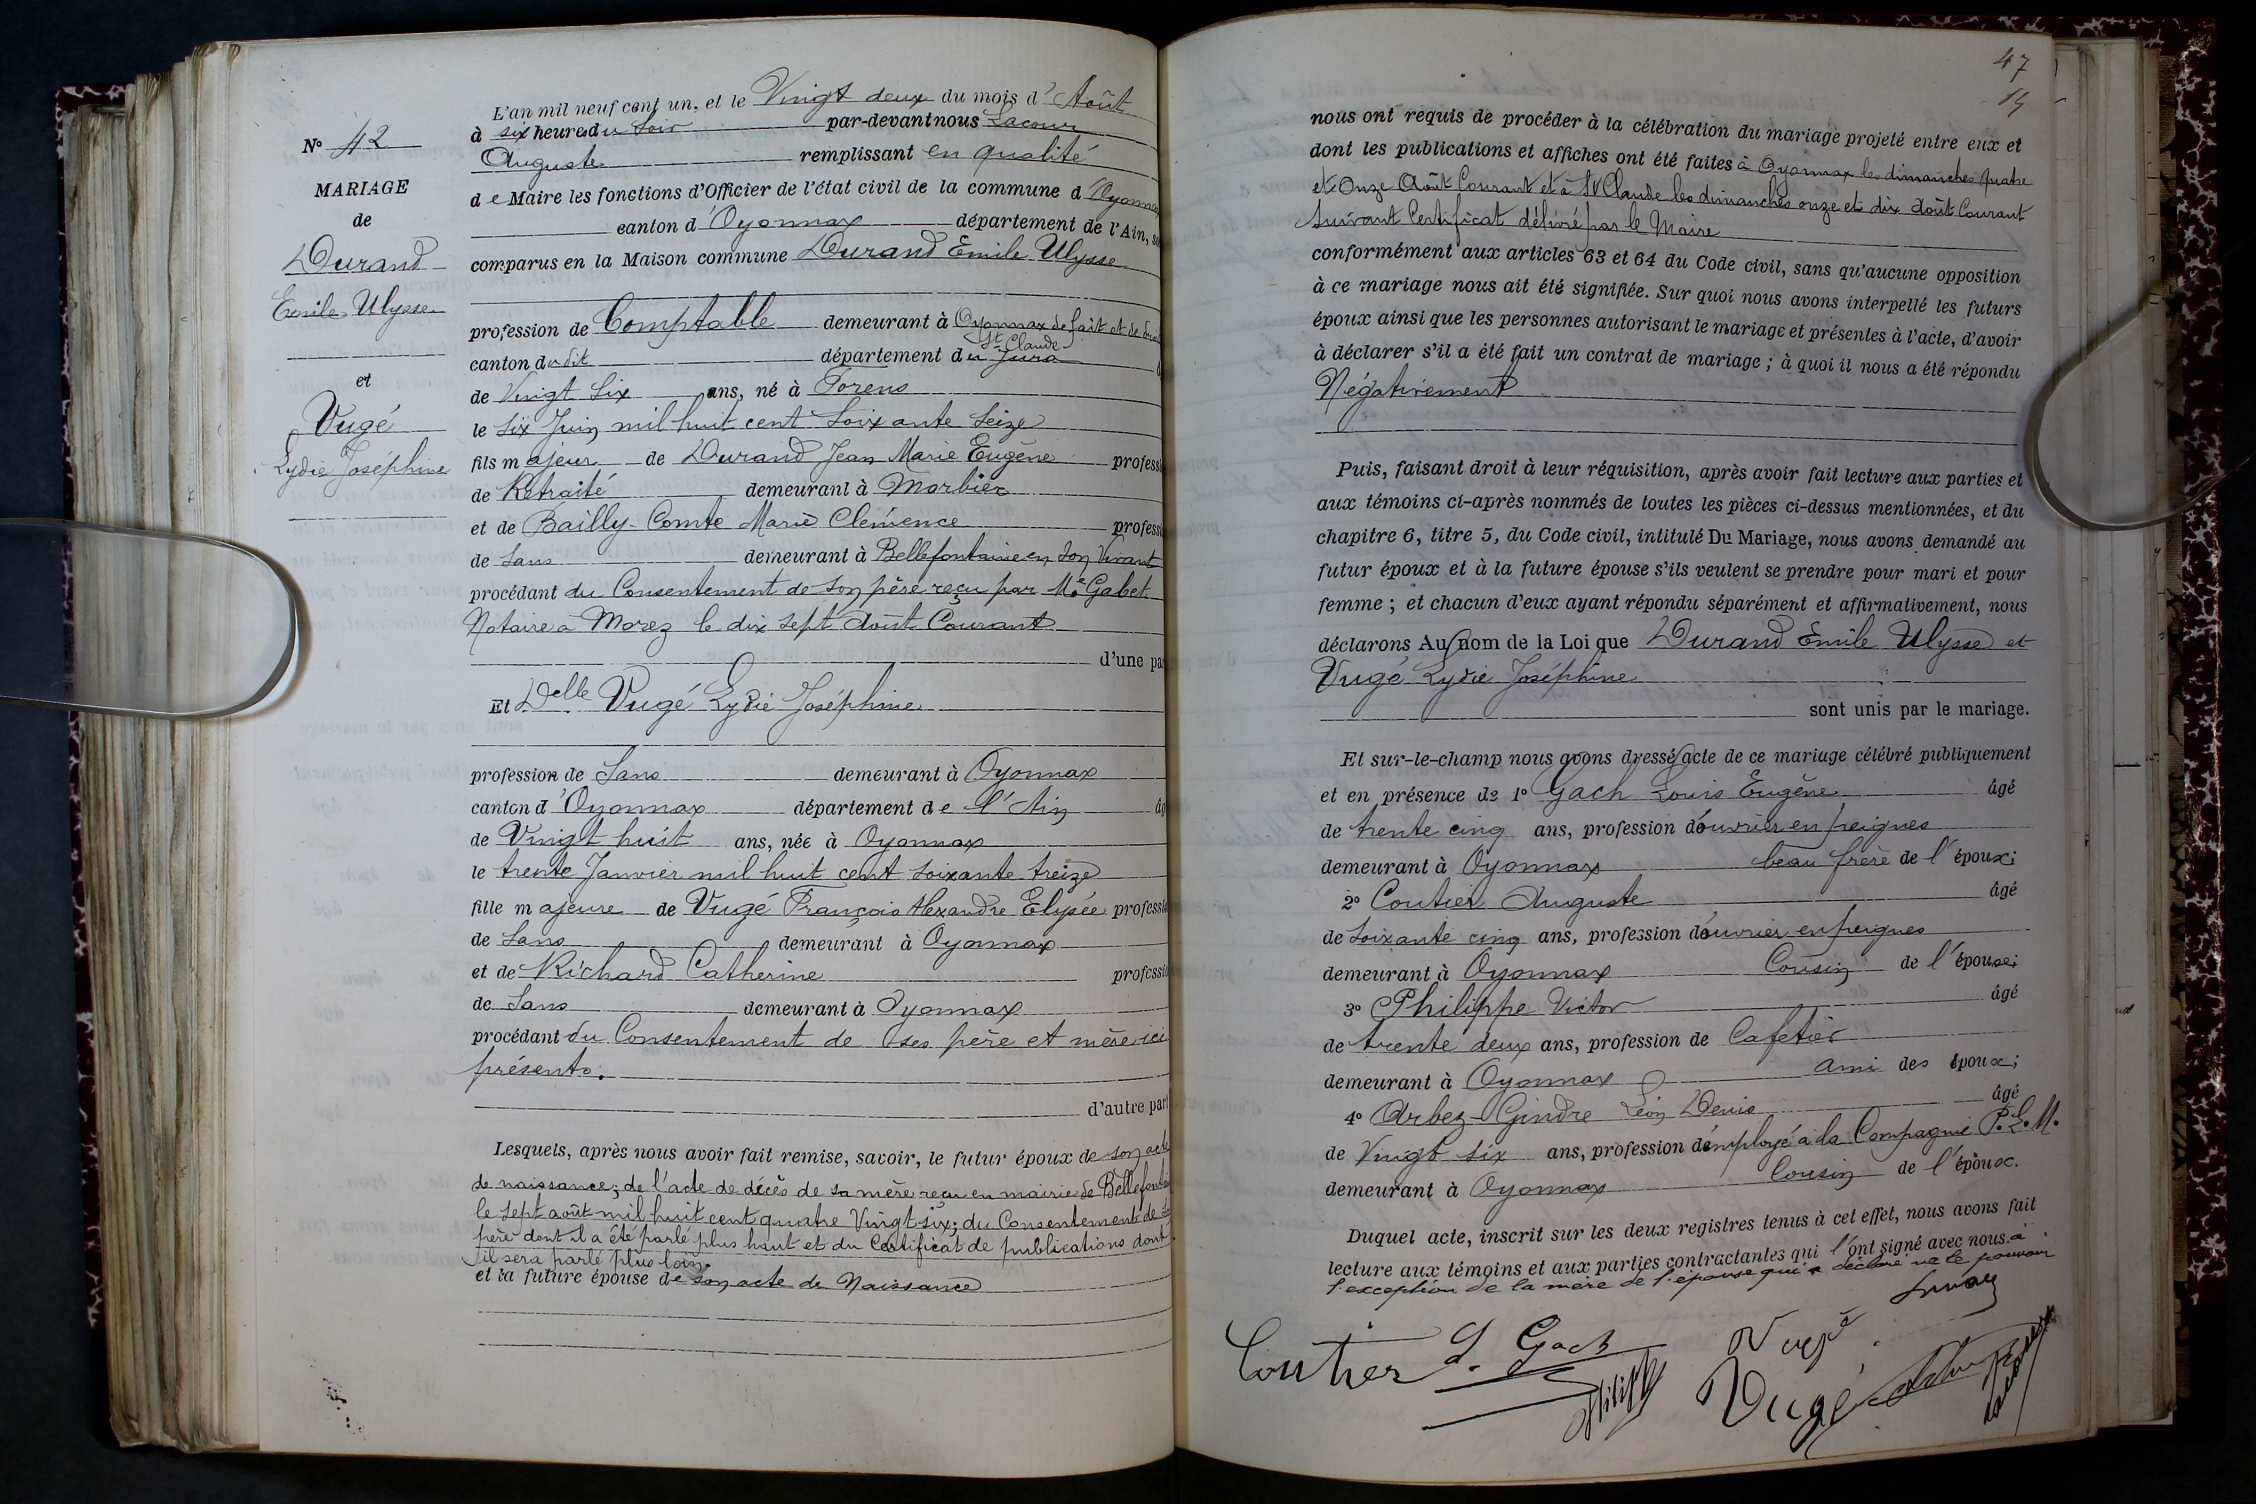 L'an mil neuf cent un, et le Vingt deux du mois d'Août
à six heures du Soir par-devant nous Lacour
Auguste remplissant en qualité
de Maire les fonctions d'Officier de l'état civil de la commune d'Oyonnax
canton d'Oyonnax département de l'Ain, so
comparus en la Maison commune Durand Emile Ulysse
profession de Comptable demeurant à Oyonnax de fait et de
St Claude
canton dudit département du Jura
de Vingt Six ans, né à Lorens
le Six Juin mil huit cent Soixante Seize
fils majeur de Durand Jean Marie Eugène profess
de Retraité demeurant à Morbier
et de Bailly-Comte Marie Clémence profess
de Sans demeurant à Bellefontaine en Son Vivant
procédant du Consentement de son père reçu par Me Gabet
Notaire à Morez le dix Sept Août Courant
d'une par
Et Delle Vugé Lydie Joséphine
profession de Sans demeurant à Oyonnax
canton d'Oyonnax département de l'Ain âg
de Vingt huit ans, née à Oyonnax
le trente Janvier mil huit cent Soixante treize
fille majeure de Vugé François Alexandre Elysée professi
de Sans demeurant à Oyonnax
et de Richard Catherine professi
de Sans demeurant à Oyonnax
procédant du Consentement de Ses père et mère ici
présents.
d'autre part
Lesquels, après nous avoir fait remise, savoir, le futur époux de son acte
de naissance; de l'acte de décès de sa mère reçu en mairie de Bellefontai
le sept août mil huit cent quatre Vingt six; du Consentement de
père dont il a été parlé plus haut et du Certificat de publications dont
il sera parlé plus loin.
et la future épouse de son acte de Naissance
No 42
MARIAGE
de
Durand
Emile Ulysse
et
Vugé
Lydie Joséphine
47
nous ont requis de procéder à la célébration du mariage projeté entre eux et
dont les publications et affiches ont été faites à Oyonnax les dimanches quatre
et Onze Août Courant et à St Claude les dimanches onze et dix Août Courant
suivant Certificat délivré par le Maire
conformément aux articles 63 et 64 du Code civil, sans qu'aucune opposition
à ce mariage nous ait été signifiée. Sur quoi nous avons interpellé les futurs
époux ainsi que les personnes autorisant le mariage et présentes à l'acte, d'avoir
à déclarer s'il a été fait un contrat de mariage; à quoi il nous a été répondu
Négativement
Puis, faisant droit à leur réquisition, après avoir fait lecture aux parties et
aux témoins ci-après nommés de toutes les pièces ci-dessus mentionnées, et du
chapitre 6, titre 5, du Code civil, intitulé Du Mariage, nous avons demandé au
futur époux et à la future épouse s'ils veulent se prendre pour mari et pour
femme; et chacun d'eux ayant répondu séparément et affirmativement, nous
déclarons Au nom de la Loi que Durand Emile Ulysse et
Vugé Lydie Joséphine
sont unis par le mariage.
Et sur-le-champ nous avons dressé acte de ce mariage célébré publiquement
et en présence de 1o Gach Louis Eugène âgé
de trente cinq ans, profession d'ouvrier en peignes
demeurant à Oyonnax beau frère de l'époux;
2o Coutier Auguste âgé
de Soixante cinq ans, profession d'ouvrier en peignes
demeurant à Oyonnax Cousin de l'épouse;
3o Philippe Victor âgé
de trente deux ans, profession de Cafetier
demeurant à Oyonnax ami des époux;
4o Arbez-Gindre Léon Denis âgé
de Vingt six ans, profession d'employé à la Compagnie P.L.M.
demeurant à Oyonnax Cousin de l'époux.
Duquel acte, inscrit sur les deux registres tenus à cet effet, nous avons fait
lecture aux témoins et aux parties contractantes qui l'ont signé avec nous à
l'exception de la mère de l'épouse qui a déclaré ne le pouvoir
Coutier L. Gach Vugé
Philippe Vugé